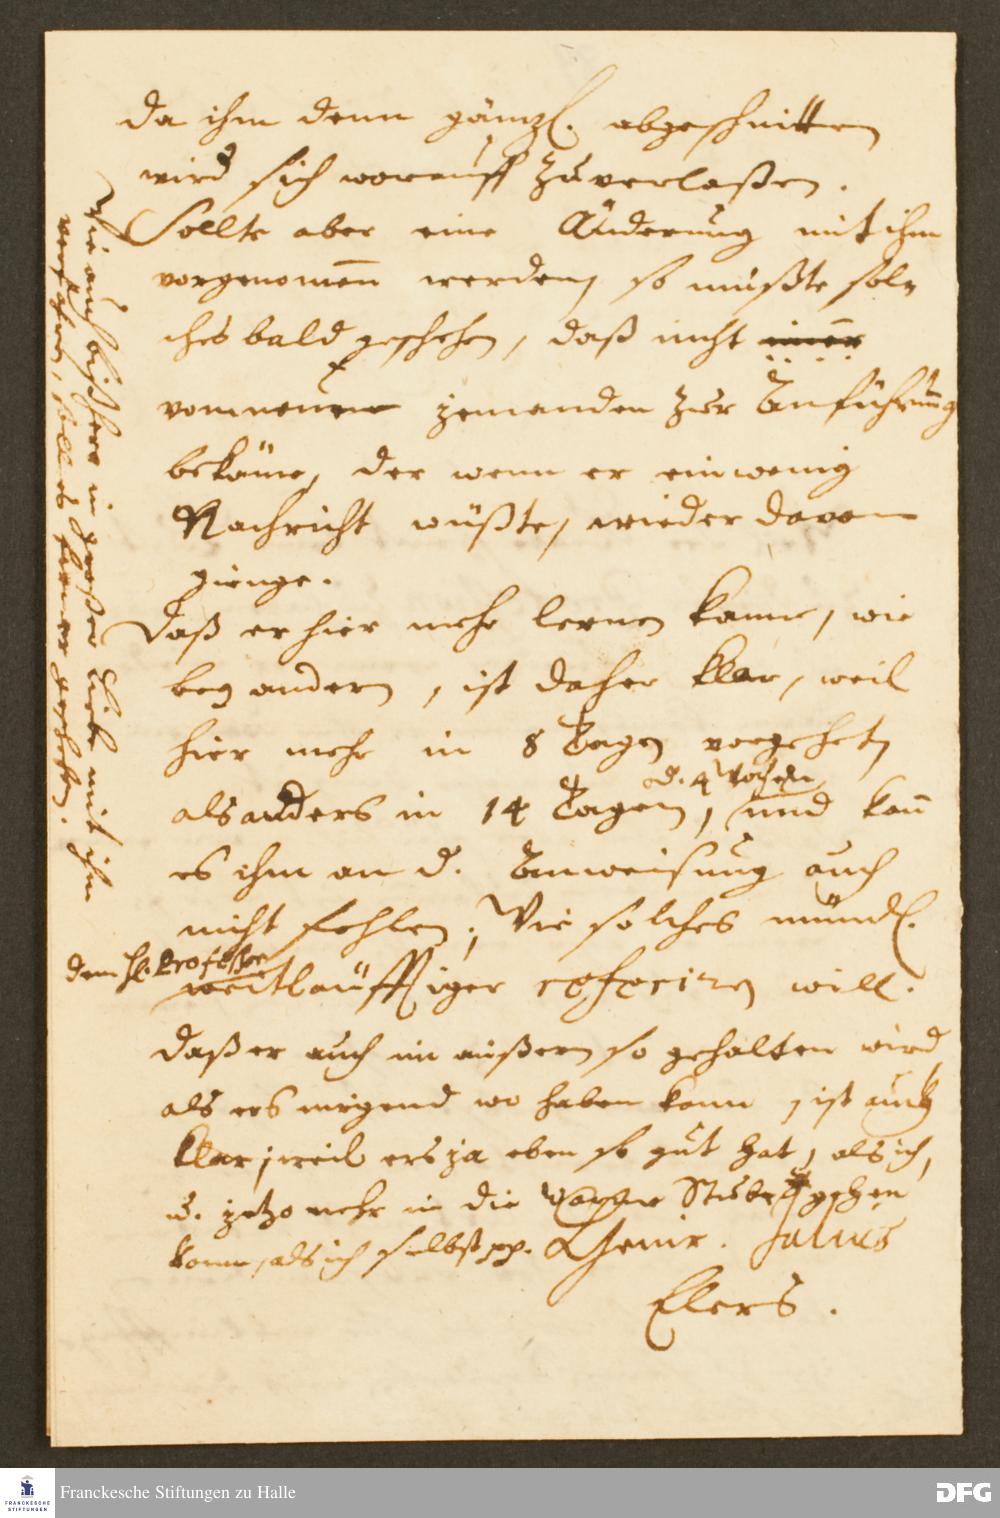 da ihm denn gäntzl. abgeschnitten
wird sich worauff zuverlaßen.
Sollte aber eine Änderung mit ihm
vorgenomen werden, so müßte sol-
ches bald geschehen, daß nicht
vom neuen jemanden zur Anführung
bekäme, der wenn er ein wenig
Nachricht wüßte, wieder davon
gienge.
Daß er hier mehr lernen kann, wie
bey andern, ist daher klar, weil
hier mehr in 8 Tagen vorgehet,
als anders in 14 Tagen, und kan
o. 4 Wochen
es ihm an d. Anweisung auch
nicht fehlen; Wie solches mündl.
dem H. Professor
weitläufftiger referiren will.
Daß er auch im äußern so gehalten wird
als ers nirgend wo haben kann, ist auch
klar, weil ers ja eben so gut hat, als ich,
u. jetzo mehr in die Stube gehen
kann, als ich selbst pp. Julius
Elers.
Wie auch bißhero in großer Liebe mit ihm
verfahren, soll es ferner geschehen.
Franckesche Stiftungen zu Halle
DFG
FRANCKESCHE
STIFTUNGEN